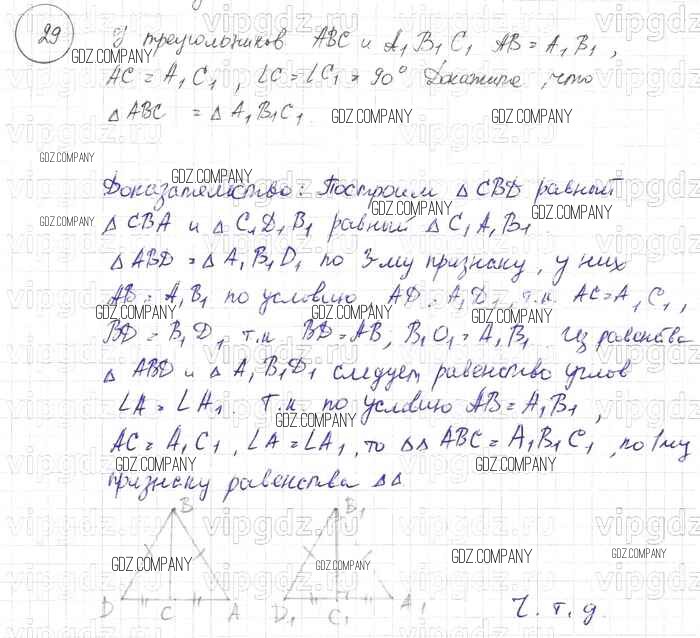 29
У треугольников ABC и A₁B₁C₁ AB = A₁B₁,
AC = A₁C₁, ∠C = ∠C₁ = 90° Докажите, что
△ ABC = △ A₁B₁C₁.
Доказательство: Построим △ CBD равный
△ CBA и △ C₁D₁B₁ равный △ C₁A₁B₁.
△ ABD = △ A₁B₁D₁ по 3-му признаку, у них
AB = A₁B₁ по условию, AD = A₁D₁, т.к. AC = A₁C₁,
BD = B₁D₁, т.к. BD = AB, B₁D₁ = A₁B₁. Из равенства
△ ABD и △ A₁B₁D₁ следует равенство углов
∠A = ∠A₁. Т.к. по условию AB = A₁B₁,
AC = A₁C₁, ∠A = ∠A₁, то △△ ABC = A₁B₁C₁, по 1му
признаку равенства △△
B B₁
D C A D₁ C₁ A₁
Ч.т.д.
GDZ.COMPANY
vipgdz.ru